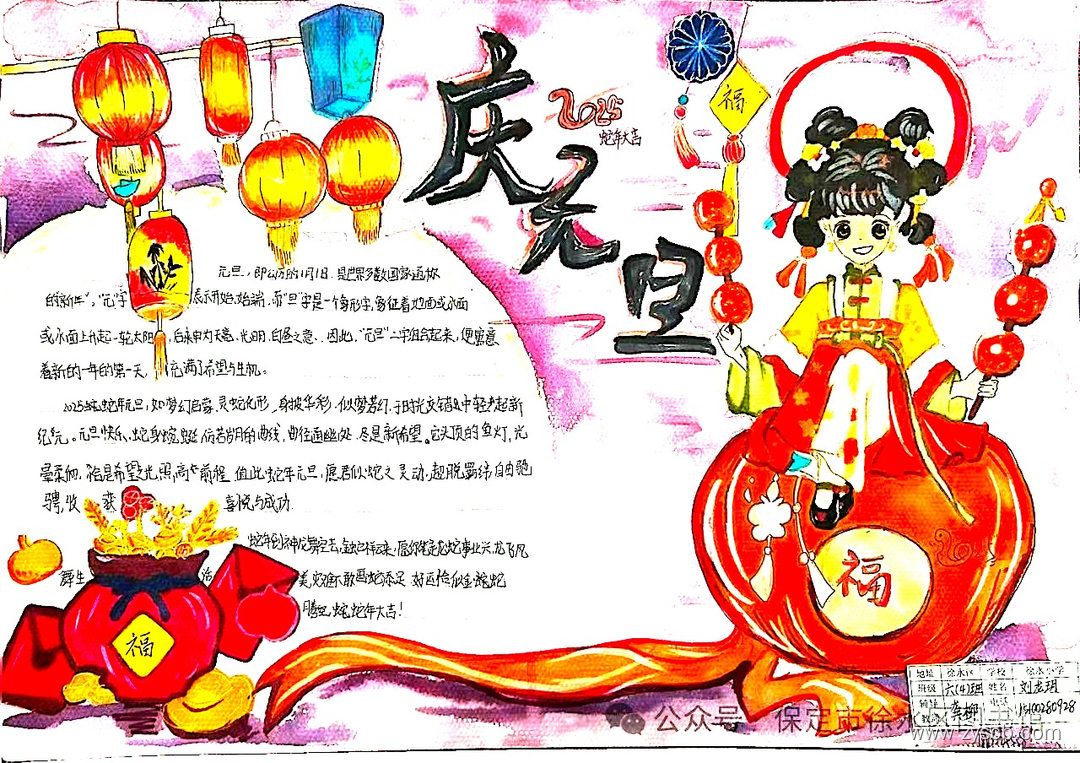 庆元旦
2025
蛇年大吉
福
元旦，即公历的1月1日，是世界多数国家通称
的"新年"，"元"字 表示开始，始端，而"旦"字是一个象形字，象征着地面或水面
或水面上升起一轮太阳，后来申为天亮、光明、白昼之意，因此，"元旦"二字组合起来，便寓意
着新的一年的第一天， 充满了希望与生机。
2025 蛇年元旦，如梦幻启幕，灵蛇化形，身披华彩，似梦若幻，于时光交错中轻声起新
纪元。元旦快乐，蛇身蜿蜒仿若岁月的曲线，曲径通幽处，尽是新希望。它头顶的鱼灯，光
晕柔和，恰是希望之光，照 前程 值此蛇年元旦，愿君似蛇之灵动，超脱 自由驰
骋，收 获 喜悦与成功
蛇年到 龙蛇 事业兴 龙飞凤
舞生 活 美 画蛇添足 好运恰似金蛇
蛇年大吉！
福
福
地址 徐水区 学校 徐水小学
班级 六(4)班 姓名 刘龙玥
辅导教师 龚柳 电话 15100280928
公众号 保定市徐水区图书馆
www.zysoo.com